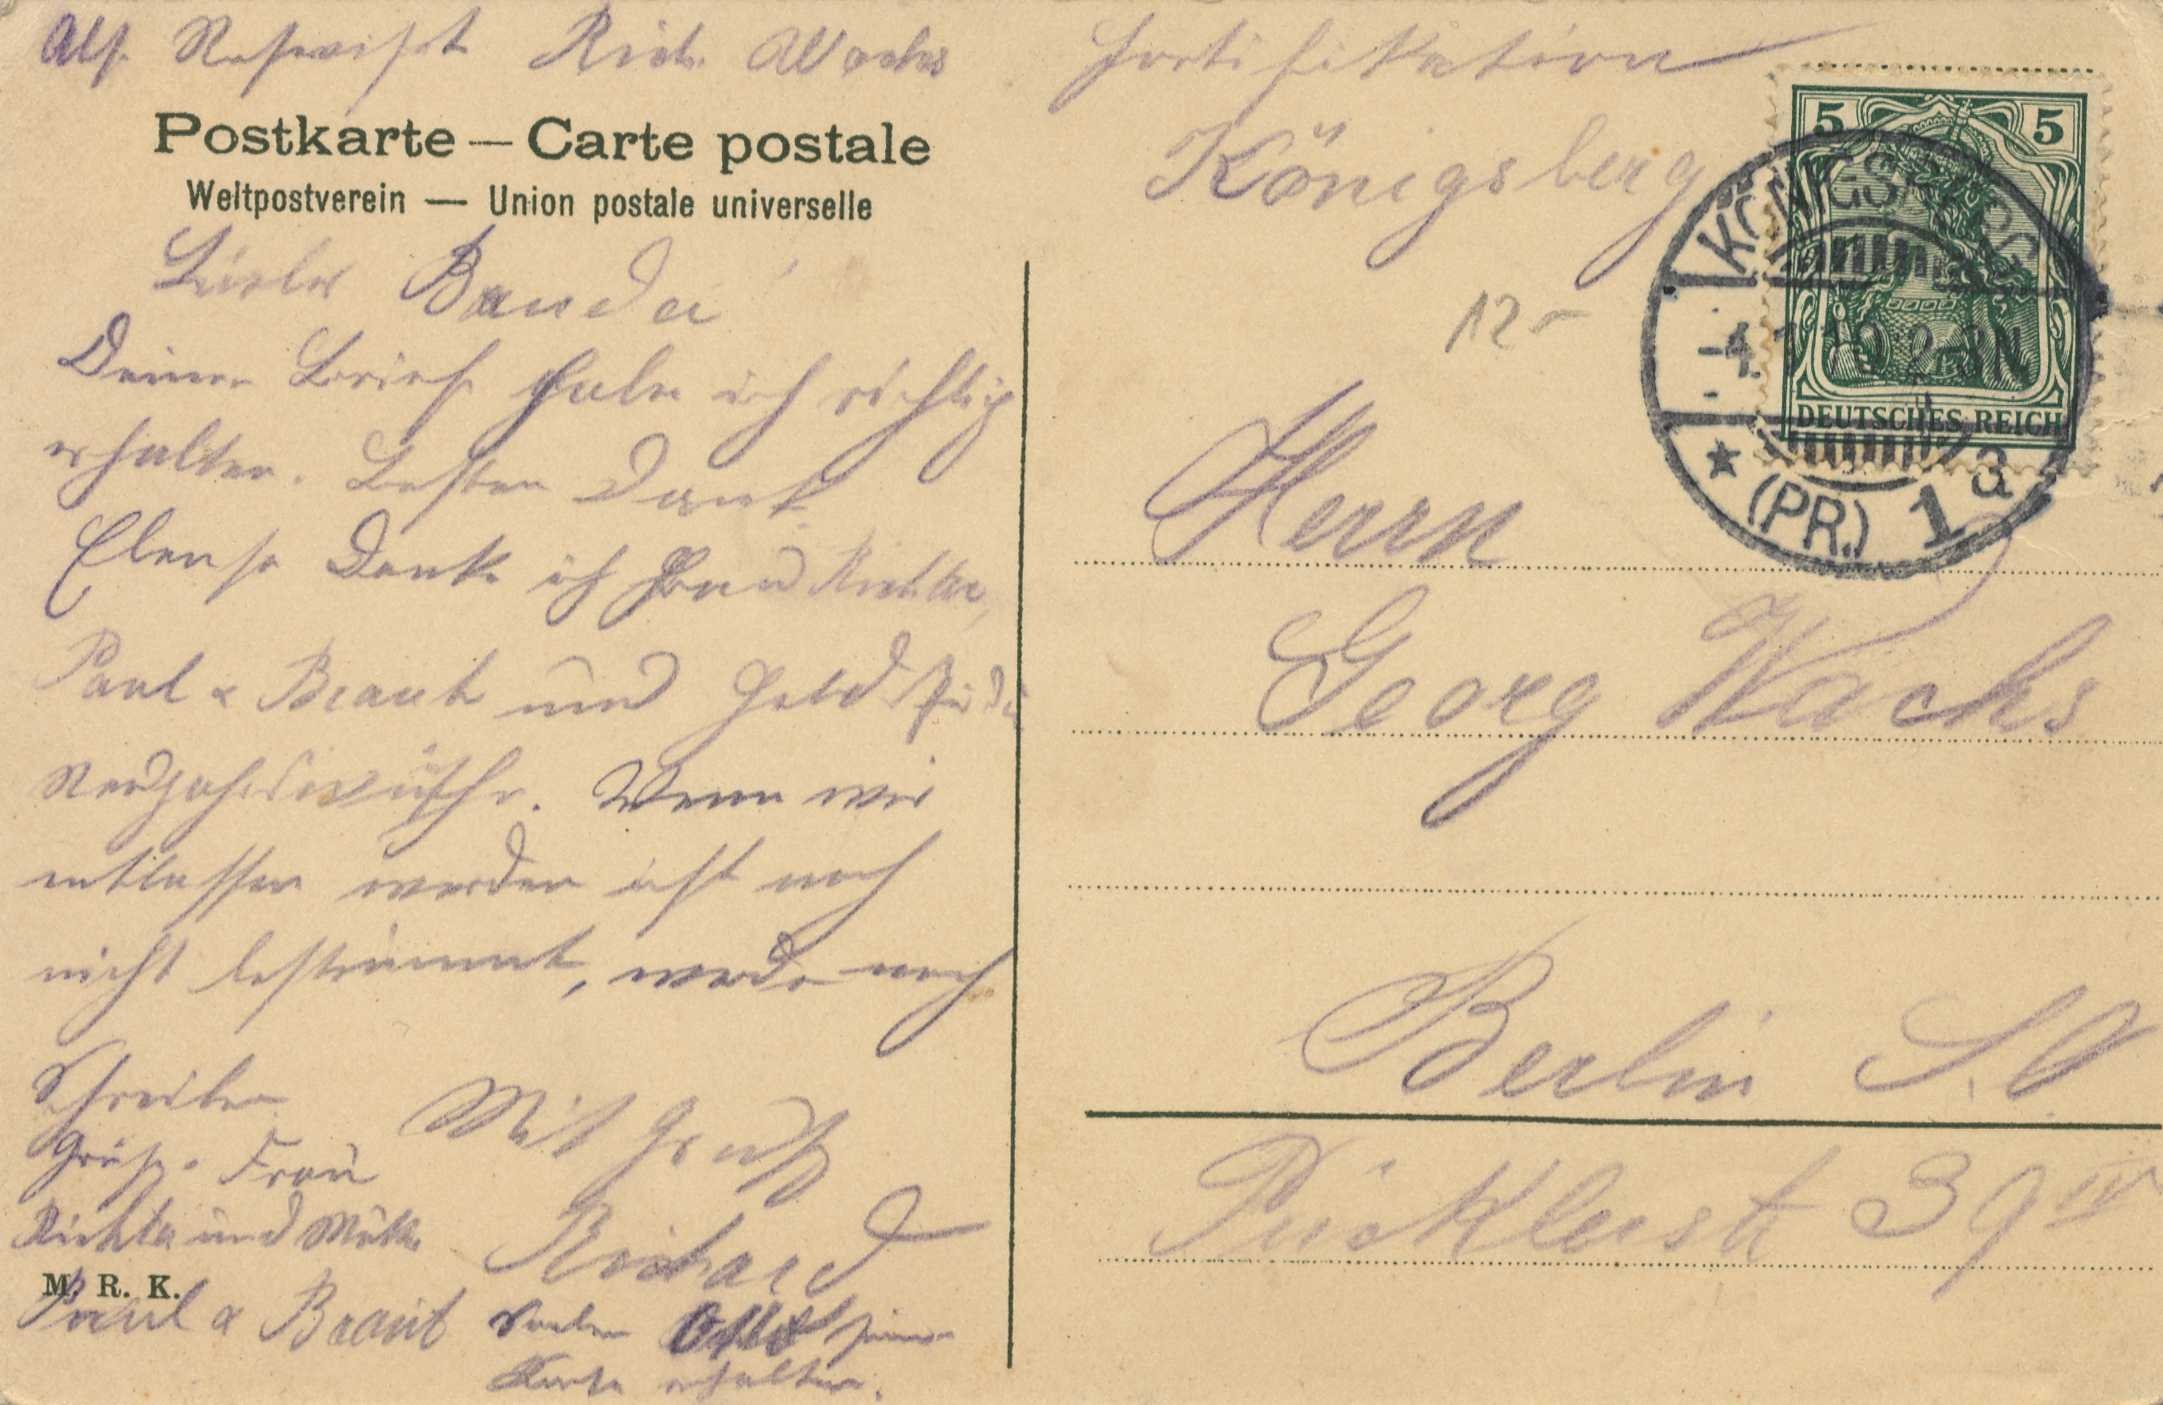 Abs. Reservist Rich. Wachs
Fortifikation
Königsberg
Postkarte – Carte postale
Weltpostverein — Union postale universelle
Lieber Bruder
Deinen Brief habe ich richtig
erhalten. Besten Dank
Ebenso Danke ich Frau Richter,
Paul & Braut und
Neujahrswünsche. Wenn wir
entlassen werden ist noch
nicht bestimmt, werde noch
schreiben
Mit Gruß
Richard
Grüße Frau
Richter und
Paul & Braut
M. R. K.
Soeben Otto seine
Karte erhalten.
12
5 5
DEUTSCHES REICH
KÖNIGSBERG
(PR.) 1 a
Herrn
Georg Wachs
Berlin S.O
Pücklerstr 39 IV